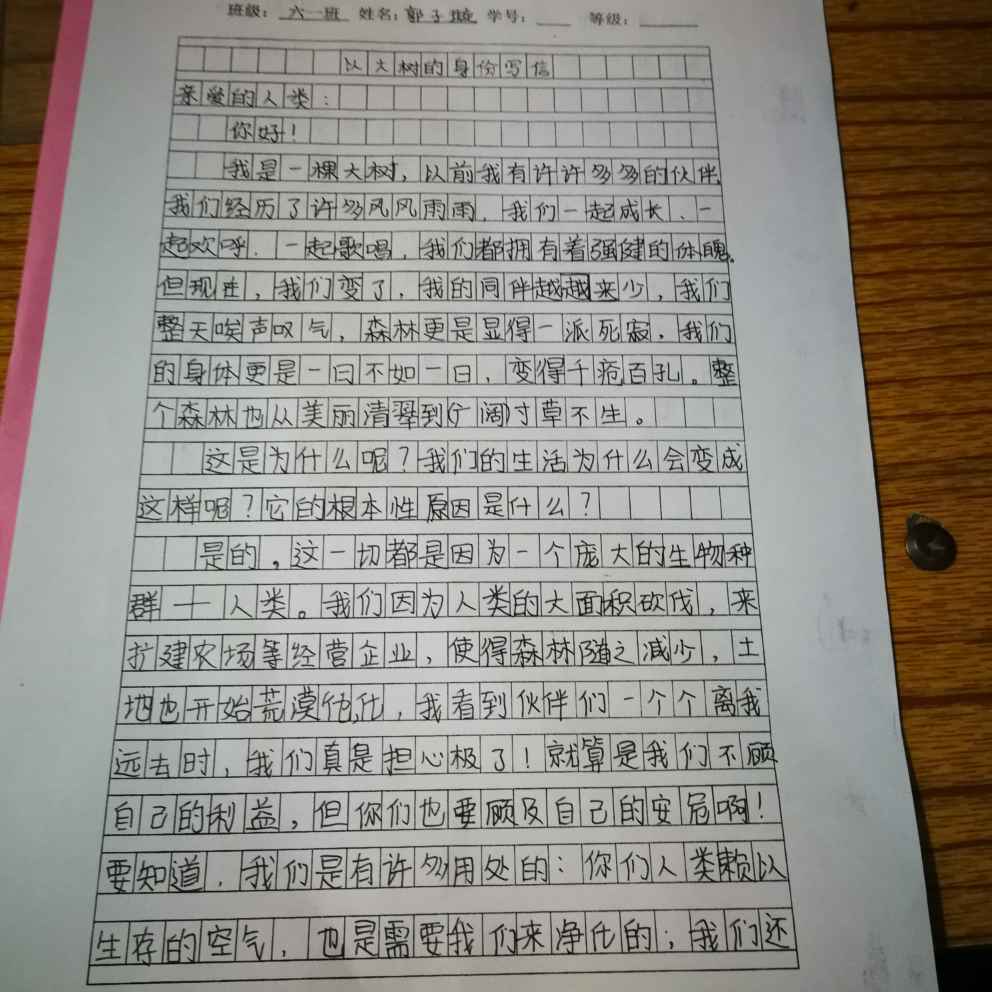 班级：六一班 姓名：郭子 学号：____ 等级：____
以大树的身份写信
亲爱的人类：
你好！
我是一棵大树，以前我有许许多多的伙伴，
我们经历了许多风风雨雨，我们一起成长、一
起欢呼、一起歌唱，我们都拥有着强健的体魄。
但现在，我们变了，我的同伴越越来少，我们
整天唉声叹气，森林更是显得一派死寂，我们
的身体更是一日不如一日，变得千疮百孔。整
个森林也从美丽清翠到广阔寸草不生。
这是为什么呢？我们的生活为什么会变成
这样呢？它的根本性原因是什么？
是的，这一切都是因为一个庞大的生物种
群——人类。我们因为人类的大面积砍伐，来
扩建农场等经营企业，使得森林随之减少，土
地也开始荒漠化，我看到伙伴们一个个离我
远去时，我们真是担心极了！就算是我们不顾
自己的利益，但你们也要顾及自己的安危啊！
要知道，我们是有许多用处的：你们人类赖以
生存的空气，也是需要我们来净化的；我们还